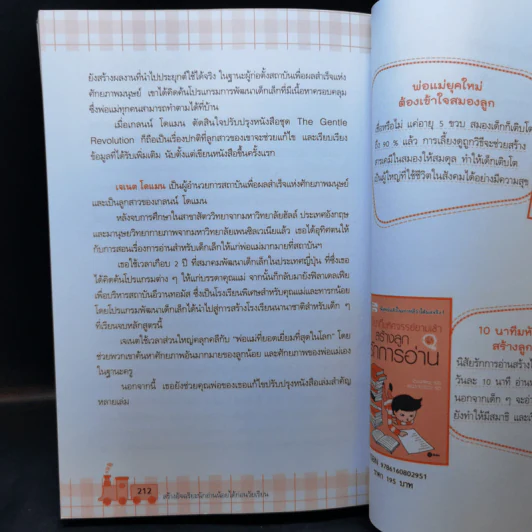 ยังสร้างผลงานที่นำไปประยุกต์ใช้ได้จริง ในฐานะผู้ก่อตั้งสถาบันเพื่อผลสำเร็จแห่ง
ศักยภาพมนุษย์ เขาได้คิดค้นโปรแกรมการพัฒนาเด็กเล็กที่มีเนื้อหาครอบคลุม
ซึ่งพ่อแม่ทุกคนสามารถทำตามได้ที่บ้าน
เมื่อเกลนน์ โดแมน ตัดสินใจปรับปรุงหนังสือชุด The Gentle
Revolution ก็ถือเป็นเรื่องปกติที่ลูกสาวของเขาจะช่วยแก้ไข และเรียบเรียง
ข้อมูลที่ได้รับเพิ่มเติม นับตั้งแต่เขียนหนังสือขึ้นครั้งแรก
เจเนต โดแมน เป็นผู้อำนวยการสถาบันเพื่อผลสำเร็จแห่งศักยภาพมนุษย์
และเป็นลูกสาวของเกลนน์ โดแมน
หลังจบการศึกษาในสาขาสัตววิทยาจากมหาวิทยาลัยฮัลล์ ประเทศอังกฤษ
และมานุษยวิทยากายภาพจากมหาวิทยาลัยเพนซิลเวเนียแล้ว เธอได้อุทิศตนให้
กับการสอนเรื่องการอ่านสำหรับเด็กเล็กให้แก่พ่อแม่มากมายที่สถาบันฯ
เธอใช้เวลาเกือบ 2 ปี ที่สมาคมพัฒนาเด็กเล็กในประเทศญี่ปุ่น ที่ซึ่งเธอ
ได้คิดค้นโปรแกรมต่าง ๆ ให้แก่บรรดาคุณแม่ จากนั้นก็กลับมายังฟิลาเดลเฟีย
เพื่อบริหารสถาบันอีวานทอมัส ซึ่งเป็นโรงเรียนพิเศษสำหรับคุณแม่และทารกน้อย
โดยโปรแกรมพัฒนาเด็กเล็กได้นำไปสู่การสร้างโรงเรียนนานาชาติสำหรับเด็ก ๆ
ที่เรียนจบหลักสูตรนี้
เจเนตใช้เวลาส่วนใหญ่คลุกคลีกับ “พ่อแม่ที่ยอดเยี่ยมที่สุดในโลก” โดย
ช่วยพวกเขาค้นหาศักยภาพอันมากมายของลูกน้อย และศักยภาพของพ่อแม่เอง
ในฐานะครู
นอกจากนี้ เธอยังช่วยคุณพ่อของเธอแก้ไขปรับปรุงหนังสือเล่มสำคัญ
หลายเล่ม
212
พ่อแม่ยุคใหม่
ต้องเข้าใจสมองลูก
เชื่อหรือไม่ แค่อายุ 5 ขวบ สมองเด็กก็เติบโต
ถึง 90 % แล้ว การเลี้ยงดูถูกวิธีจะช่วยสร้าง
สารเคมีในสมองให้สมดุล ทำให้เด็กเติบโต
เป็นผู้ใหญ่ที่ใช้ชีวิตในสังคมได้อย่างมีความสุข
สร้างลูก
การอ่าน
10 นาทีมหั
สร้างลูก
นิสัยรักการอ่านสร้างไ
วันละ 10 นาที อ่าน
นอกจากเด็ก ๆ จะอ่า
ยังทำให้มีสมาธิ และเ
9784160802951
ราคา 195 บาท